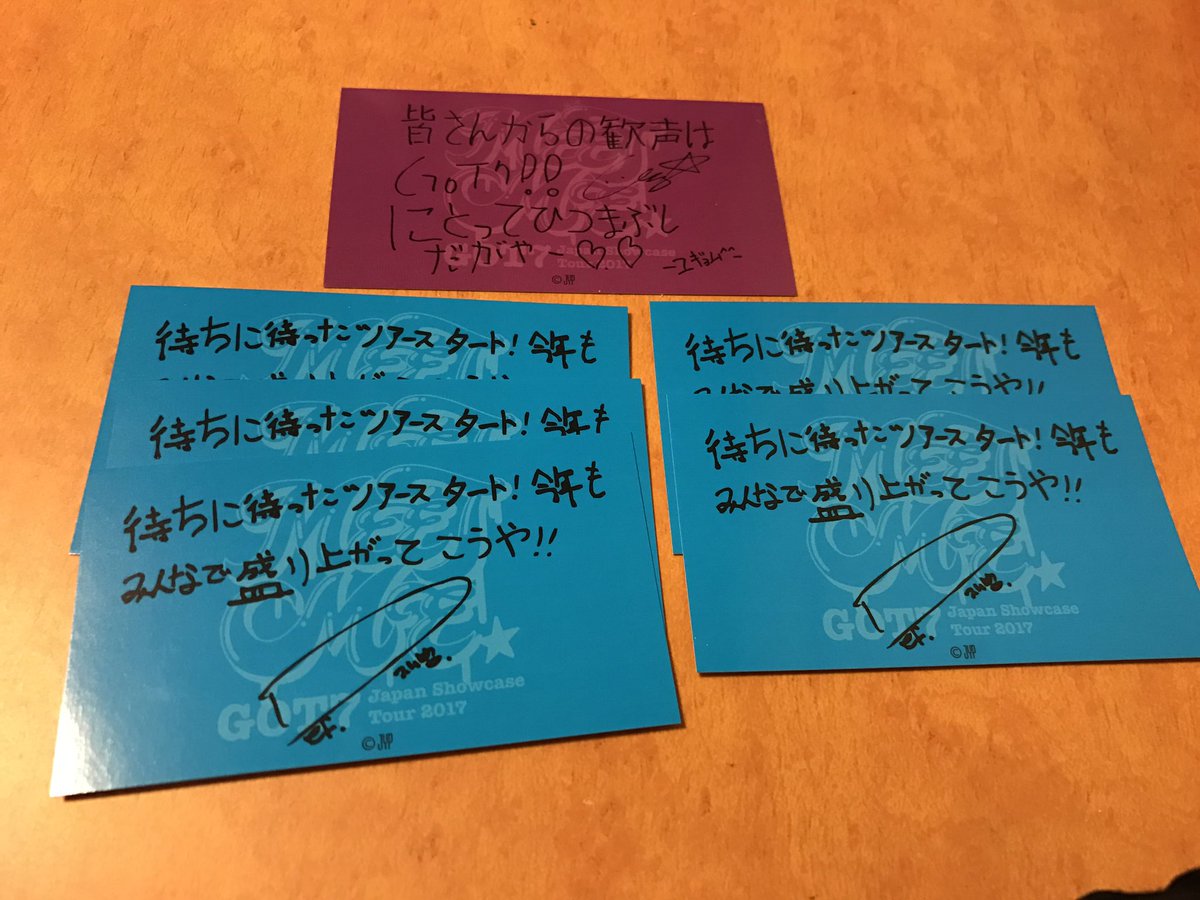 皆さんからの歓声は
にとってひつまぶし
だがやー♡♡
-ユギョム-
GOT7 Japan Showcase
Tour 2017
©JYP
待ちに待ったツアースタート!今年も
待ちに待ったツアースタート!今年も
待ちに待ったツアースタート!今年も
みんなで盛り上がってこうや!!
MEET
ME
GOT7 Japan Showcase
Tour 2017
©JYP
待ちに待ったツアースタート!今年も
みんなで盛り上がってこうや!!
待ちに待ったツアースタート!今年も
みんなで盛り上がってこうや!!
MEET
ME
GOT7 Japan Showcase
Tour 2017
©JYP